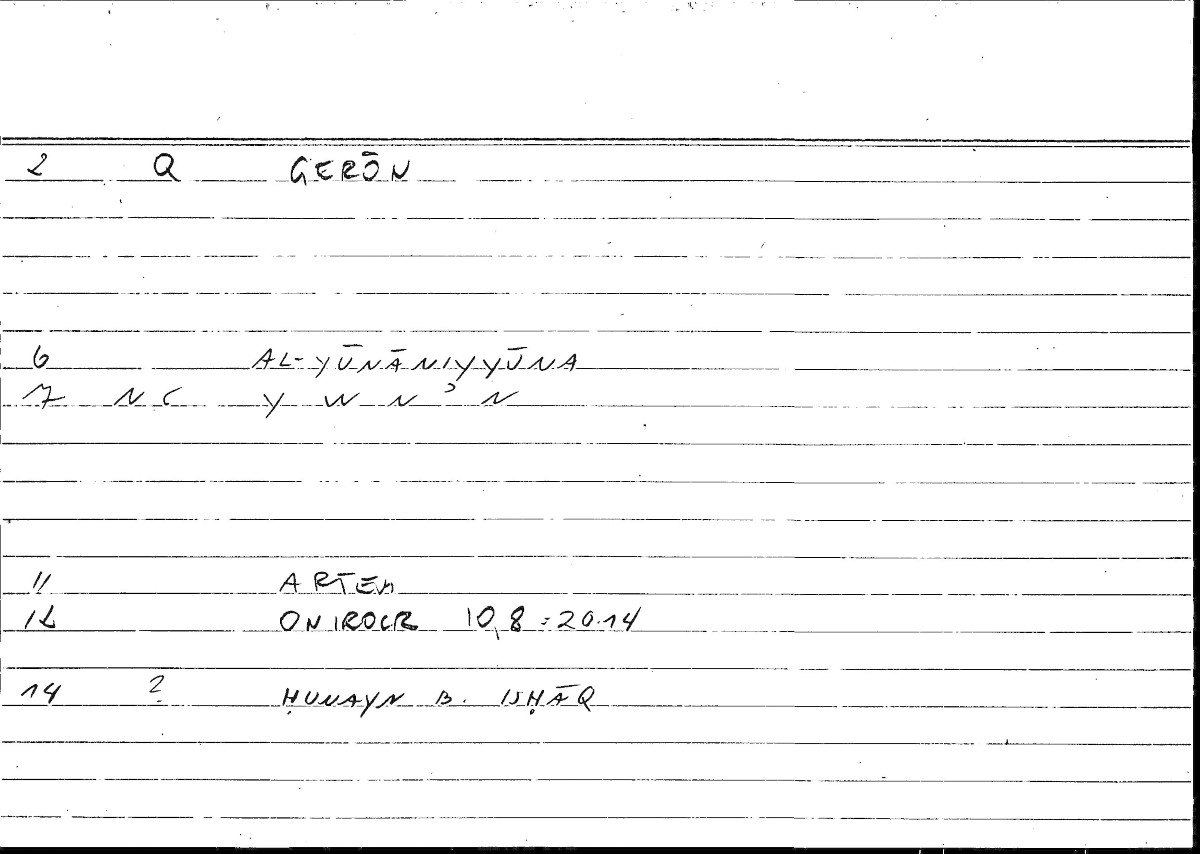 2 Q GERŌN
6 AL-YŪNĀNIYYŪNA
7 NC Y W N ʾ N
11 ARTEM
12 ONIROCR 10,8 = 20.14
14 ? ḤUNAYN B. ISḤĀQ